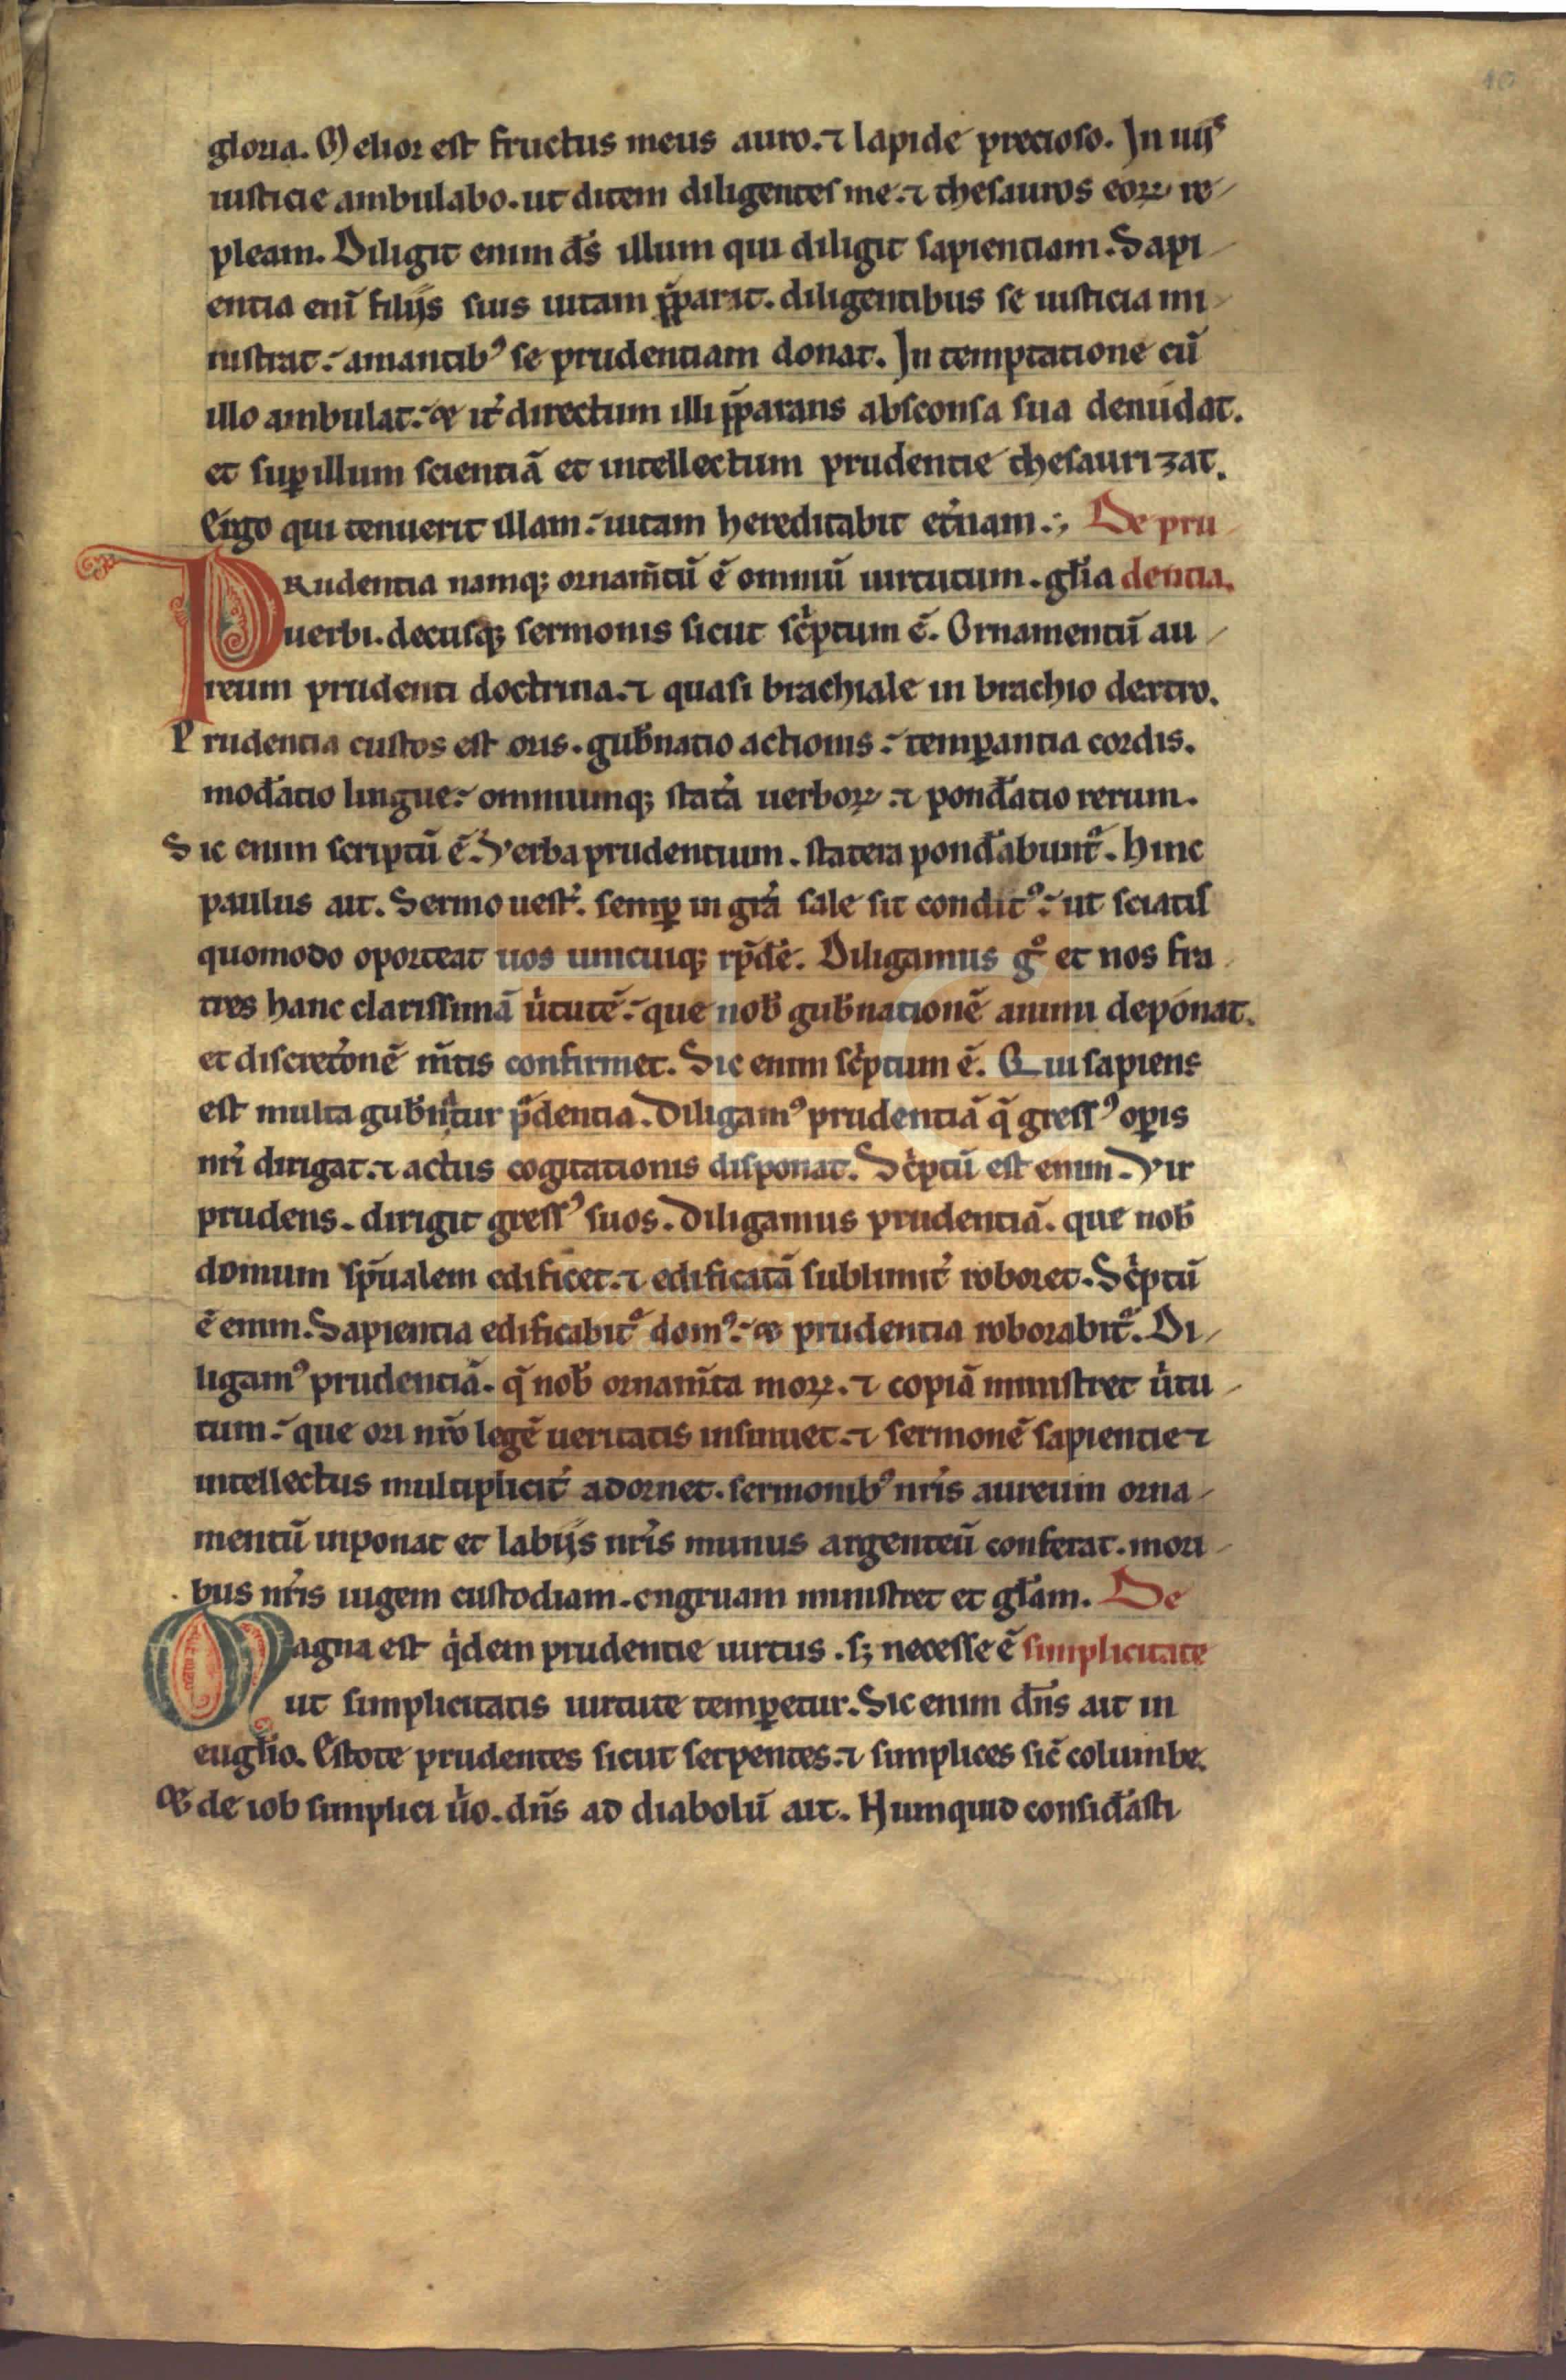 10
gloria. Melior est fructus meus auro. ⁊ lapide precioso. In uiis
iusticie ambulabo. ut ditem diligentes me. ⁊ thesauros eoꝝ re
pleam. Diligit enim d̄s illum qui diligit sapientiam. Sapi
entia eni̅ filijs suis uitam p̅parat. diligentibus se iusticia mi
nistrat. amantibꝰ se prudentiam donat. In temptatione cu̅
illo ambulat. & it̉ directum illi p̅parans absconsa sua denudat.
et suꝑ illum scientia̅ et intellectum prudentie thesaurizat.
Ergo qui tenuerit illam. uitam hereditabit et̉nam. De pru
Prudentia namqꝫ ornam̅tu̅ e̅ omniu̅ uirtutum. gl̅ia dentia.
uerbi. decusqꝫ sermonis sicut sc̉ptum e̅. Ornamentu̅ au
reum prudenti doctrina. ⁊ quasi brachiale in brachio dextro.
Prudentia custos est oris. gub̅natio actionis. temꝑantia cordis.
mod̅atio lingue. omniumqꝫ stat̉a uerboꝝ. ⁊ pond̅atio rerum.
Sic enim scriptu̅ e̅. Verba prudentium. statera pond̅abunt᷑. hinc
paulus ait. Sermo uest̉. semꝑ in gr̅a sale sit conditꝰ. ut sciatis
quomodo oporteat uos unicuiqꝫ rp̅de̅. Diligamus gͦ et nos fra
tres hanc clarissima̅ ủtute̅. que nob̅ gub̅natione̅ animi deponat.
et discreto̅ne̅ m̅tis confirmet. Sic enim sc̉ptum e̅. Qui sapiens
est multa gub̅nᷓtur pͮdentia. Diligamꝰ prudentia̅ q̅ gressꝰ oꝑis
nr̅i dirigat. ⁊ actus cogitationis disponat. Sc̉ptu̅ est enim. Vir
prudens. dirigit gressꝰ suos. Diligamus prudentia̅. que nob̅
domum sp̅ualem edificet. ⁊ edificata̅ sublimit̉ roboret. Sc̉ptu̅
e̅ enim. Sapientia edificabit᷑ domꝰ. & prudentia roborabit᷑. Di
ligamꝰ prudentia̅. q̅ nob̅ ornam̅ta moꝝ. ⁊ copia̅ ministret ủtu
tum. que ori nr̅o lege̅ ueritatis insinuet. ⁊ sermone̅ sapientie ⁊
intellectus multiplicit̉ adornet. sermonibꝰ nr̅is aureum orna
mentu̅ inponat et labijs nr̅is munus argenteu̅ conferat. mori
bus nr̅is iugem custodiam. congruam ministret et gl̅am. De
Magna est q̉dem prudentie uirtus. sꝫ necesse e̅ simplicitate
ut simplicitatis uirtute temꝑetur. Sic enim dn̅s ait in
eugl̅io. Estote prudentes sicut serpentes. ⁊ simplices sic̅ columbe.
& de iob simplici ủo. dn̅s ad diabolu̅ ait. Numquid consid̅asti